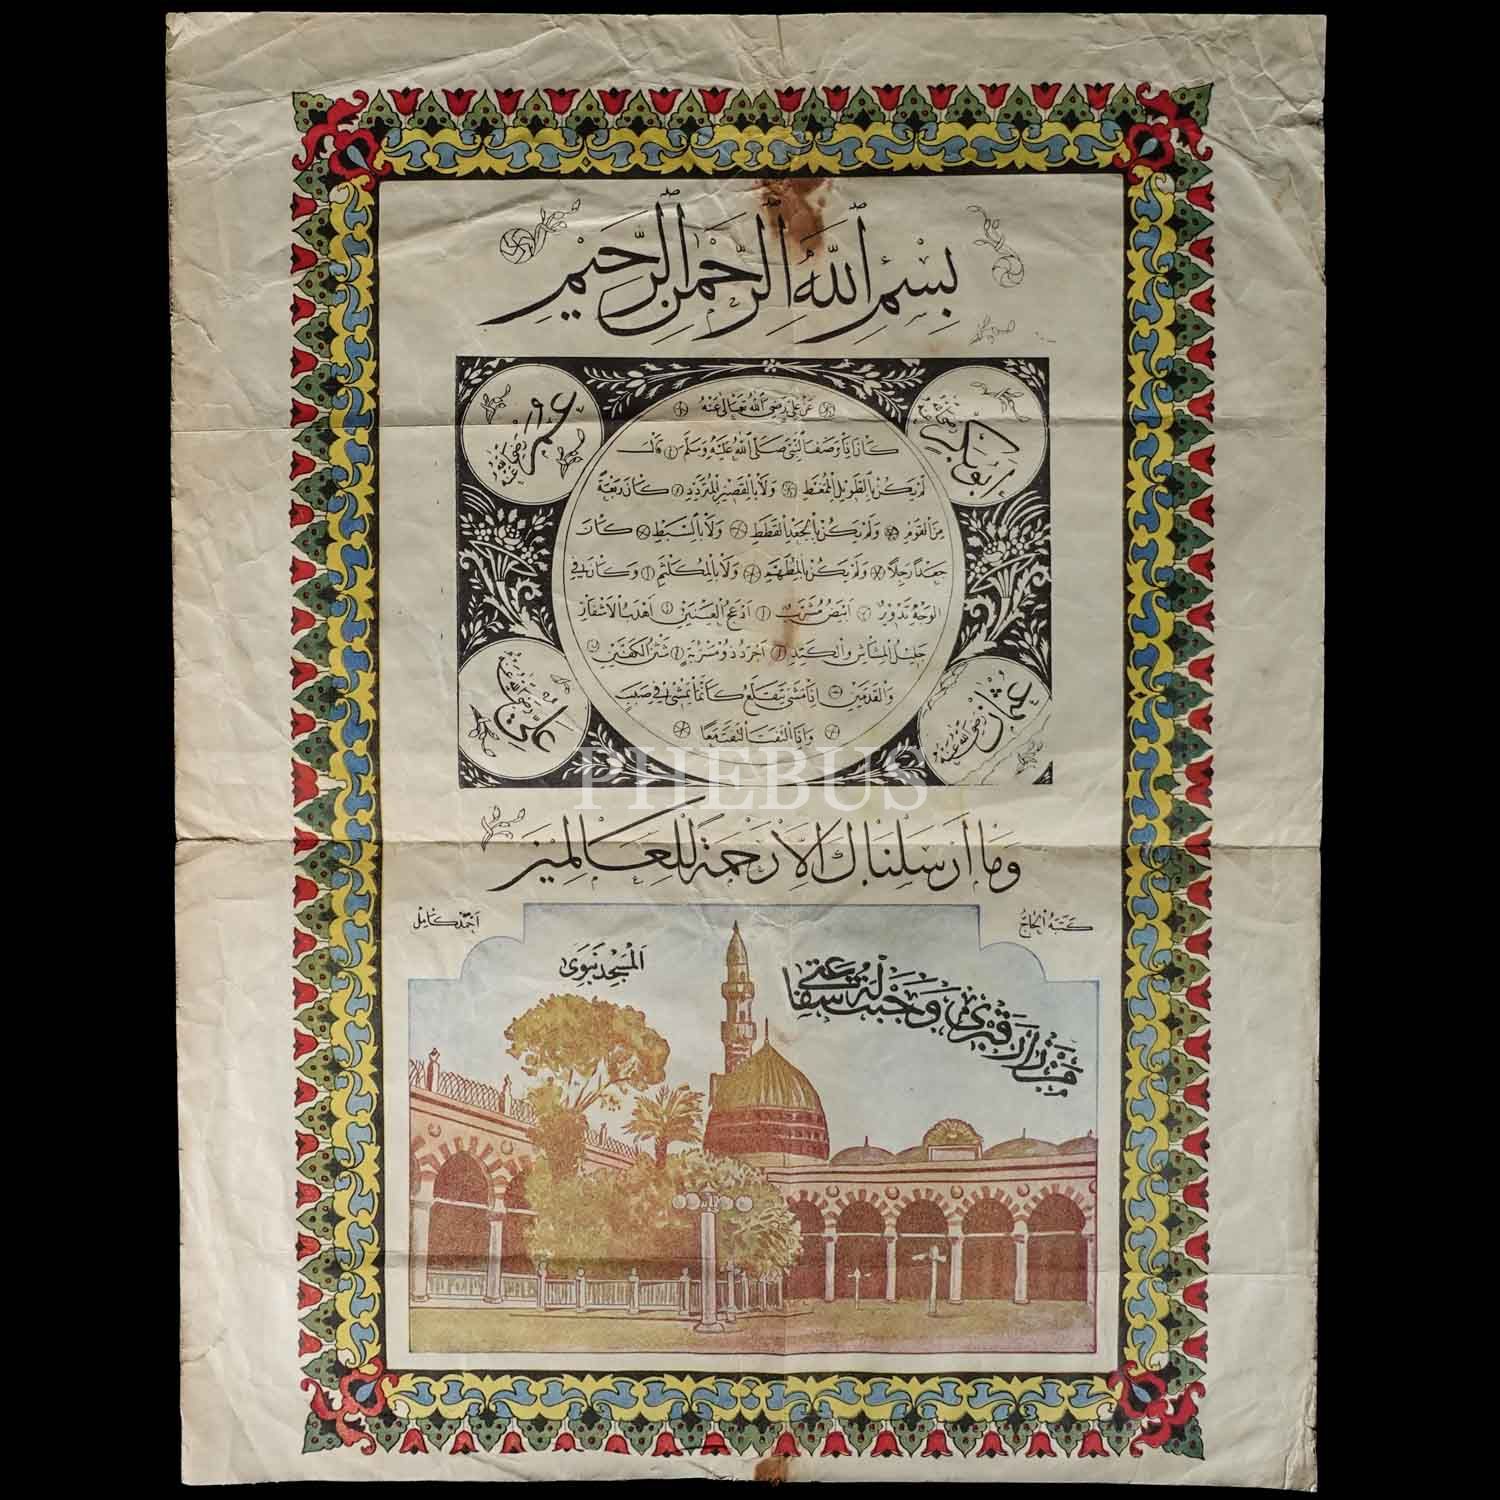 بِسْمِ اللّٰهِ الرَّحْمٰنِ الرَّحِيمِ
ابو بكر رضى الله عنه
عمر رضى الله عنه
عَنْ عَلِىٍّ رَضِىَ اللّٰهُ تَعَالٰى عَنْهُ
كَانَ اِذَا وَصَفَ النَّبِىَّ صَلَّى اللّٰهُ عَلَيْهِ وَسَلَّمَ قَالَ
لَمْ يَكُنْ بِالطَّوِيلِ الْمُمَّغِطِ وَلَا بِالْقَصِيرِ الْمُتَرَدِّدِ كَانَ رَبْعَةً
مِنَ الْقَوْمِ وَلَمْ يَكُنْ بِالْجَعْدِ الْقَطَطِ وَلَا بِالسَّبْطِ كَانَ
جَعْدًا رَجِلًا وَلَمْ يَكُنْ بِالْمُطَهَّمِ وَلَا بِالْمُكَلْثَمِ وَكَانَ فِى
الْوَجْهِ تَدْوِيرٌ اَبْيَضُ مُشْرَبٌ اَدْعَجُ الْعَيْنَيْنِ اَهْدَبُ الْاَشْفَارِ
جَلِيلُ الْمُشَاشِ وَالْكَتَدِ اَجْرَدُ ذُو مَسْرُبَةٍ شَثْنُ الْكَفَّيْنِ
وَالْقَدَمَيْنِ اِذَا مَشٰى يَتَقَلَّعُ كَاَنَّمَا يَمْشِى فِى صَبَبٍ
وَاِذَا الْتَفَتَ الْتَفَتَ مَعًا
عثمان رضى الله عنه
على رضى الله عنه
PHEBUS
وَمَا اَرْسَلْنَاكَ اِلَّا رَحْمَةً لِلْعَالَمِينَ
كَتَبَهُ الْحَاجُّ
اَحْمَدْ كَامِلْ
اَلْمَسْجِدْ نَبَوِى
مَنْ زَارَ قَبْرِى وَجَبَتْ لَهُ شَفَاعَتِى